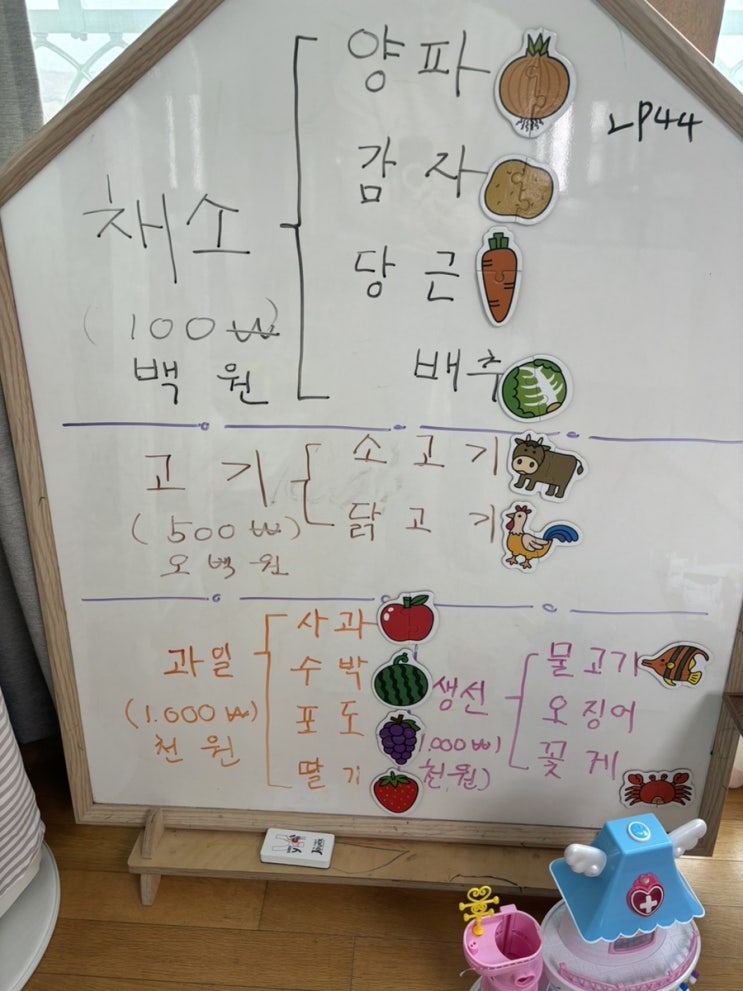 양파
감자
채소
당근
(100₩)
백원
배추
고기
소고기
(500₩)
닭고기
오백원
과일
(1.000₩)
천원
사과
수박
포도
딸기
생선
(1.000₩)
천원)
물고기
오징어
꽃게